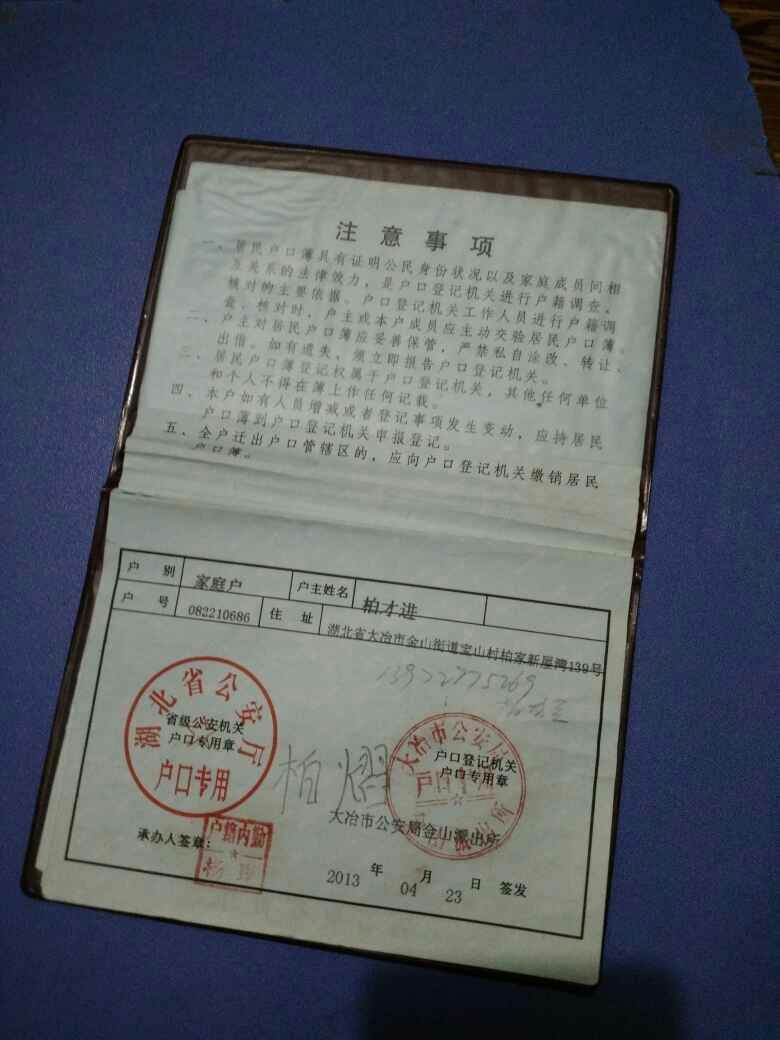 注意事项
一、居民户口簿具有证明公民身份状况以及家庭成员间相
互关系的法律效力，是户口登记机关进行户籍调查、
核对的主要依据。户口登记机关工作人员进行户籍调
查、核对时，户主或本户成员应主动交验居民户口簿。
二、户主对居民户口簿应妥善保管，严禁私自涂改、转让、
出借。如有遗失，须立即报告户口登记机关。
三、居民户口簿登记权属于户口登记机关，其他任何单位
和个人不得在簿上作任何记载。
四、本户如有人员增减或者登记事项发生变动，应持居民
户口簿到户口登记机关申报登记。
五、全户迁出户口管辖区的，应向户口登记机关缴销居民
户口簿。
户 别 家庭户 户主姓名 柏才进
户 号 082210686 住 址 湖北省大冶市金山街道宝山村柏家新屋湾139号
湖北省公安厅
省级公安机关
户口专用章
户口专用
柏熠
大冶市公安局
户口登记机关
户口专用章
大冶市公安局金山派出所
承办人签章：
户籍内勤
2013 年 04 月 23 日 签发